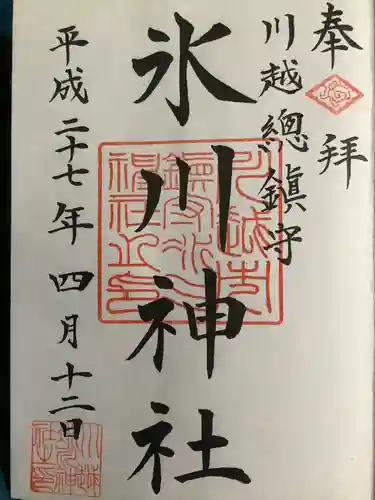 奉拜
川越總鎮守
氷川神社
平成二十七年四月十二日